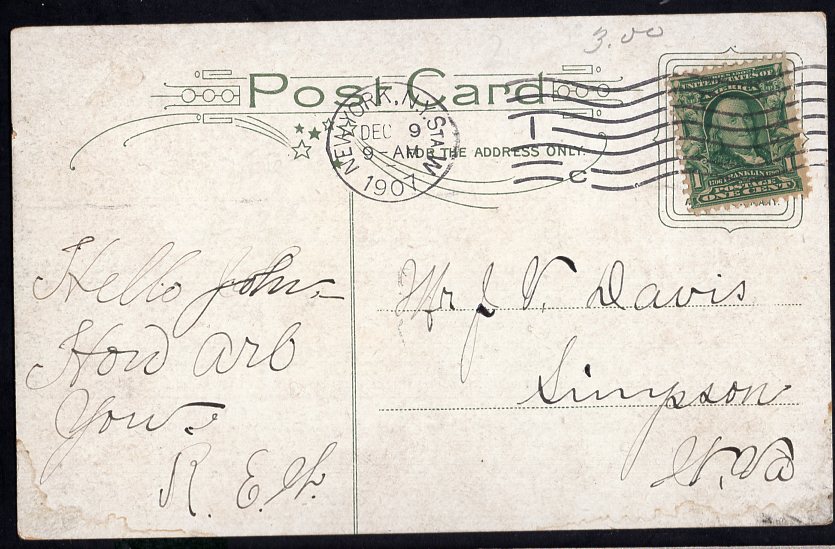 3.00
Post Card
FOR THE ADDRESS ONLY.
NEW YORK, N.Y. STA. W
DEC 9
9-AM
1907
1
C
UNITED STATES OF
AMERICA
1 FRANKLIN 1
POSTAGE
ONE CENT
Hello John
How are
You
R. E. W.
Mr J. V. Davis
Simpson
W. Va